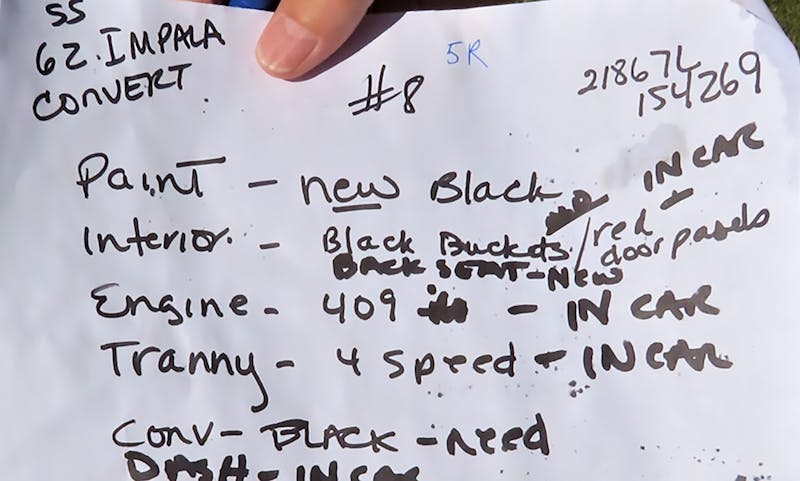 SS
62. IMPALA
CONVERT
#8
5R
21867L
154269
Paint - new Black
IN CAR
Interior. - Black Buckets / red door panels
BACK SEAT - New
Engine - 409 - IN CAR
Tranny - 4 Speed - IN CAR
Conv - BLACK - need
DASH - IN CAR